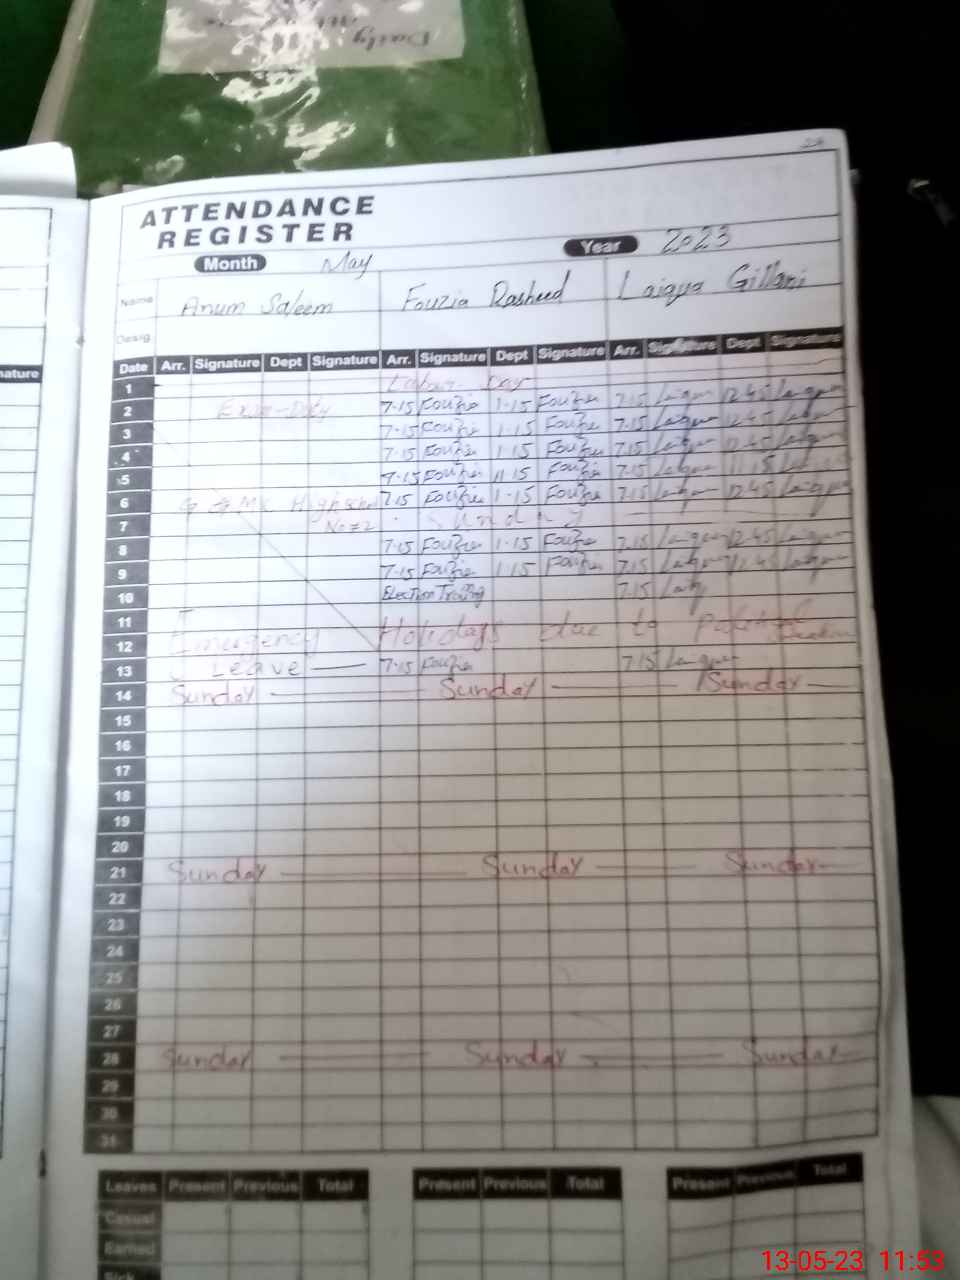 Daily
ATTENDANCE
REGISTER
Month May Year 2023
Name Anum Saleem Fouzia Rasheed Laiqua Gillani
Desig.
nature
Date Arr. Signature Dept Signature Arr. Signature Dept Signature Arr. Signature Dept Signature
1 Labour Day
2 Exam-Duty 7-15 Fouzia 1-15 Fouzia 7.15 Laiqua 12.45 Laiqua
3 7-15 Fouzia 1-15 Fouzia 7.15 Laiqua 12.45 Laiqua
4 7-15 Fouzia 1-15 Fouzia 7.15 Laiqua 12.45 Laiqua
5 7-15 Fouzia 11.15 Fouzia 7.15 Laiqua 11.15 Laiqua
6 High School 7.15 Fouzia 1-15 Fouzia 7.15 Laiqua 12.45 Laiqua
7 No=2 Sunday
8 7-15 Fouzia 1-15 Fouzia 7.15 Laiqua 12.45 Laiqua
9 7-15 Fouzia 1-15 Fouzia 7.15 Laiqua 12.45 Laiqua
10 Election Training 7.15 Laiq
11
12 Emergency Holidays due to Political
13 Leave 7-15 Fouzia 7.15 Laiqua
14 Sunday Sunday Sunday
15
16
17
18
19
20
21 Sunday Sunday Sunday
22
23
24
25
26
27
28 Sunday Sunday Sunday
29
30
31
Leaves Present Previous Total Present Previous Total Present Previous Total
Casual
Earned
Sick
13-05-23 11:53